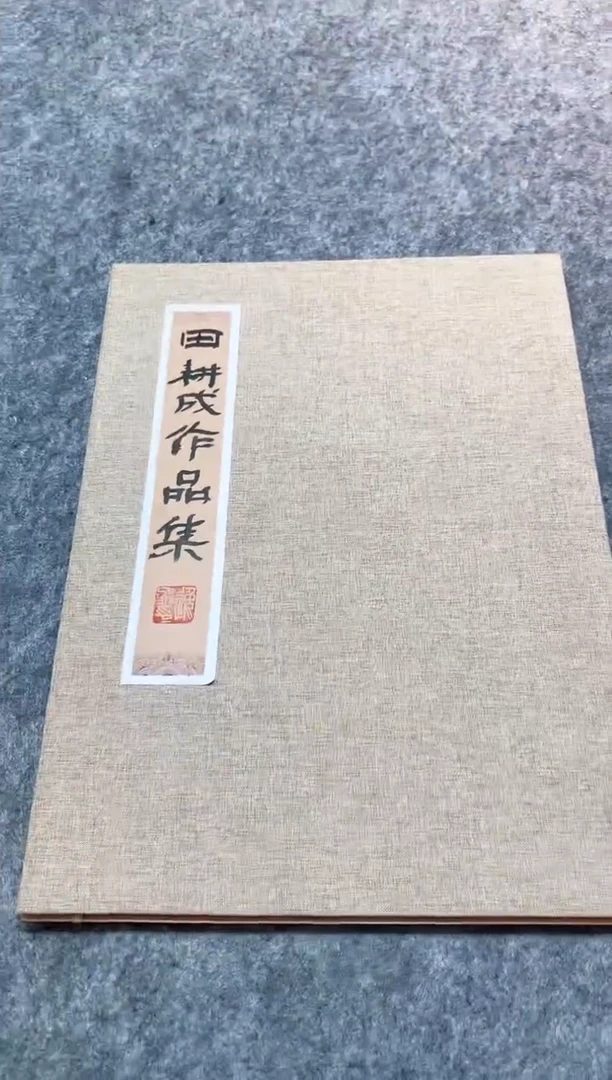 田耕成作品集